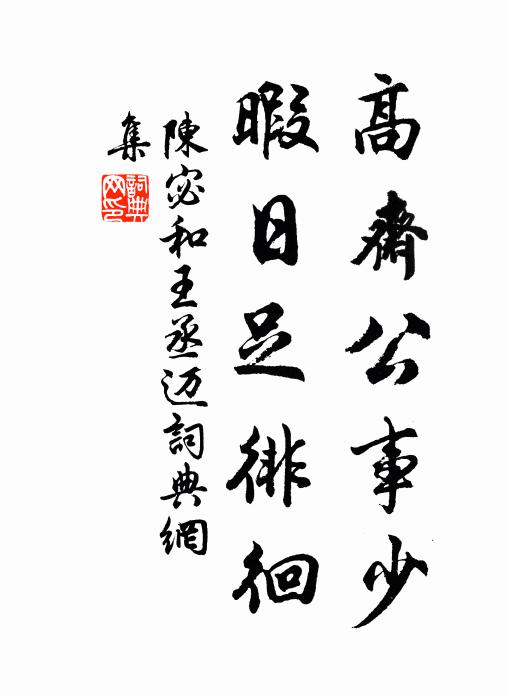 高齋公事少
暇日足徘徊
陳宓和王丞迈詞典網
集
詞典网印